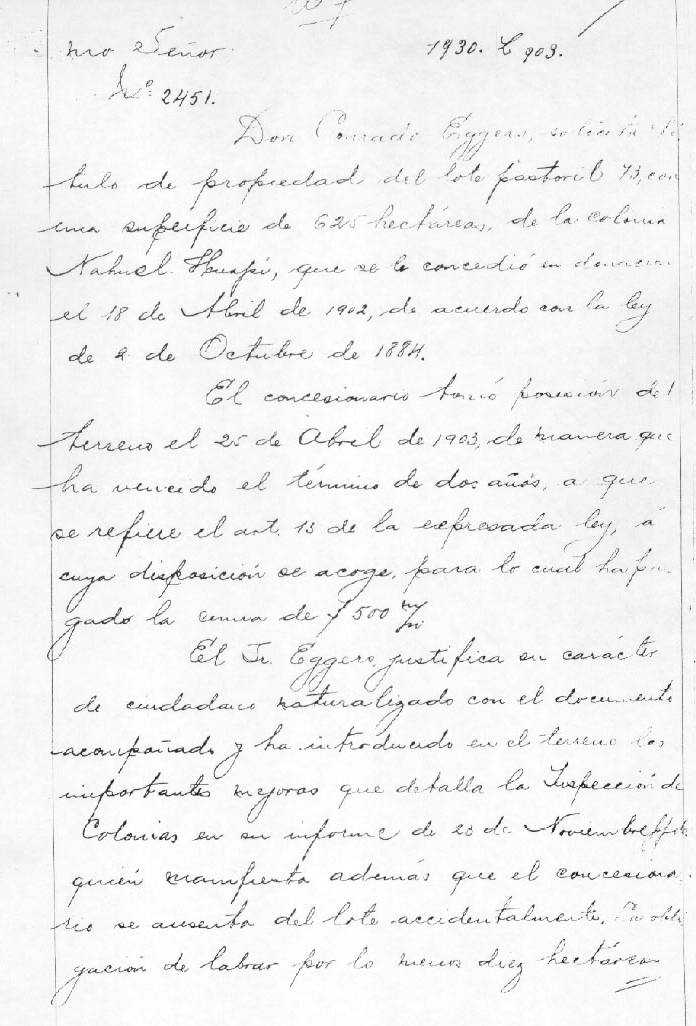 mo Señor. 1930. L 903.
Nº 2451.
Don Conrado Eggers, solicita tí
tulo de propiedad del lote pastoril 73, con
una superficie de 625 hectáreas, de la colonia
Nahuel Huapí, que se le concedió en donación
el 18 de Abril de 1902, de acuerdo con la ley
de 2 de Octubre de 1884.
El concesionario tomó posesión del
terreno el 25 de Abril de 1903, de manera que
ha vencido el término de dos años, a que
se refiere el art. 13 de la expresada ley, á
cuya disposición se acoge, para lo cual ha pa
gado la suma de $ 500 m/n
El Sr. Eggers, justifica su carácter
de ciudadano naturalizado con el documento
acompañado y ha introducido en el terreno las
importantes mejoras que detalla la Inspección de
Colonias en su informe de 23 de Noviembre ppdo
quién manifiesta además que el concesiona
rio se ausenta del lote accidentalmente. La obli
gación de labrar por lo menos diez hectáreas